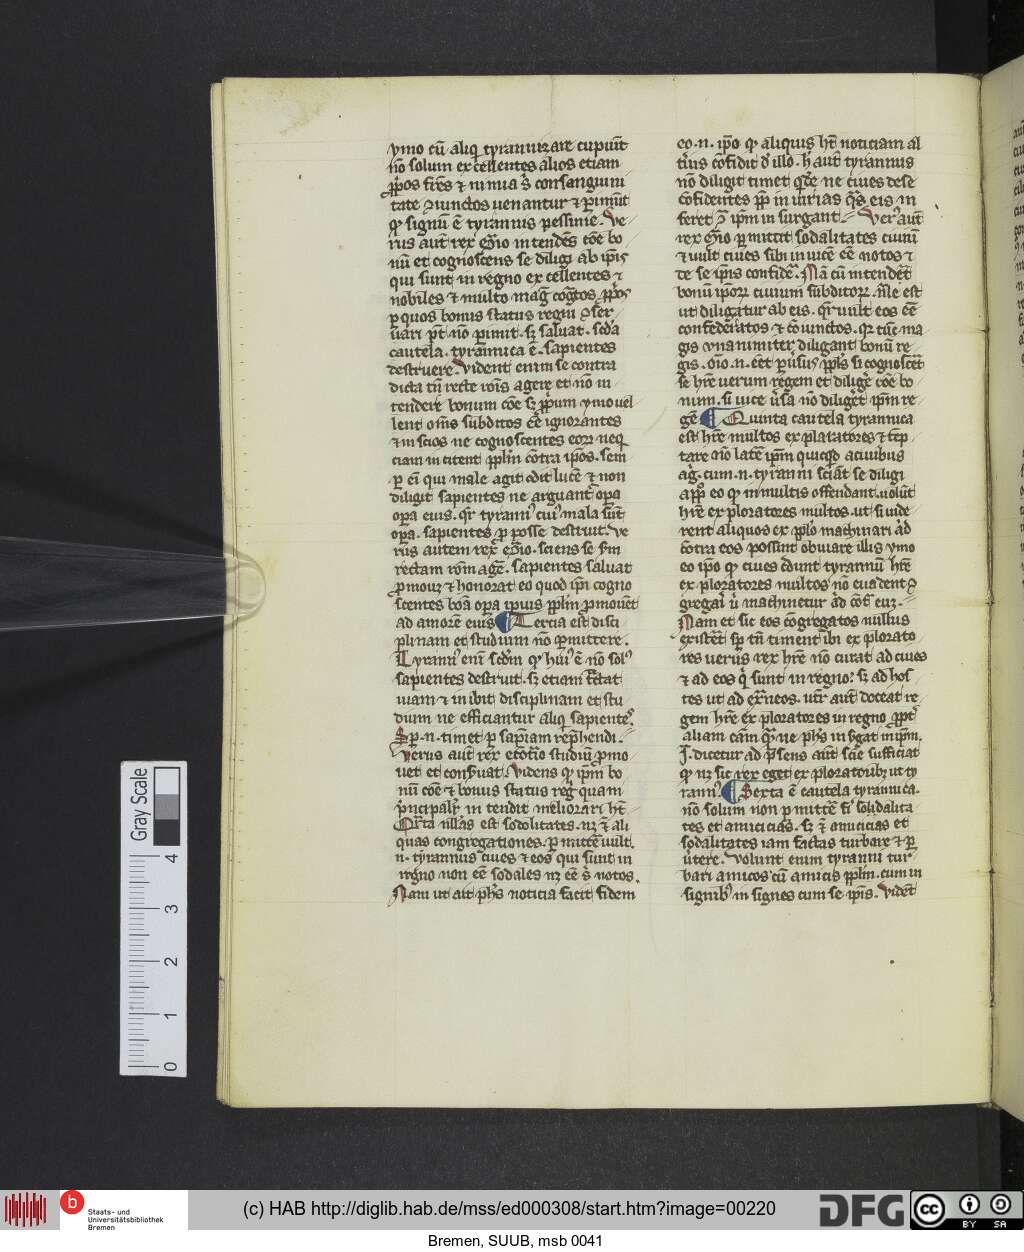 ymo cū aliq̄ tyrannizare cupiūt
nō solum excellentes alios etiam
ꝓp̄os fr̄es ⁊ nimia s̄ consanguini
tate ꝯiunctos uenantur ⁊ ꝑimūt
qꝫ signū ē tyrannis pessime. Ve
rus aut̄ rex intendēs cōe bo
nū et cognoscens se diligi ab ip̄is
qui sunt in regno excellentes ⁊
nobiles ⁊ multo maḡ
ꝑ quos bonus status regni ꝯser
uari pōt nō ꝑimit. sꝫ saluat. scd̄a
cautela. tyrannica ē. sapientes
destruere. Vident enim se contra
dicta tn̄ recte rōis agere et nō in
tendere bonum cōe sꝫ ꝓp̄um ymo uel
lent om̄s subditos ēe ignorantes
⁊ inscios ne cognoscentes eoꝝ neq̄
ciam incitent ppl̄m cōtra ip̄os. sem
ꝑ ēi qui male agit odit lucē ⁊ non
diligit sapientes ne arguant̄ oꝑa
oꝑa eius. qr̄ tyrannꝰ cuiꝰ mala sūt
oꝑa. sapientes ꝓ posse destruit. Ve
rus autem rex sciens se scd̄m
rectam rōm agē. sapientes saluat
ꝓmouꝫ ⁊ honorat eo quod ip̄i cogno
scentes bōa oꝑa ip̄ius ppl̄m ꝓmouēt
ad amorē eius Tercia est disci
plinam et studium nō ꝑmittere.
Tyrannꝰ eni scd̄m qꝫ huiꝰ ē nō solꝰ
sapientes destruit. sꝫ etiam
uiam ⁊ inibit disciplinam et stu
dium ne efficiantur aliq̄ sapientes.
Sꝑ .n. timet ꝑ sapīam rep̄hendi.
Verus aut̄ rex studiū ꝓmo
uet et conseruat. Videns qꝫ ip̄m bo
nū cōe ⁊ bonus status reg̃ quam
p̄ncipalr̄ intendit meliorari ht̄
Qrta est sodolitates. ⁊ ali
quas congregationes. ꝑmittē uult.
.n. tyrannus ciues ⁊ eos qui sunt in
regno non ēe sodales nꝫ ēe s̄ notos.
Nam ut ait ph̄s noticia facit fidem
eo .n. ip̄o qꝫ aliquis ht̄ noticiam al
tiꝰ cōfidit d̄ illo. h̄ aut̄ tyrannus
nō diligit timet ne ciues dese
cōfidentes ꝓp̄ iniurias q̄s eis in
feret ꝯ ip̄m insurgant. Verꝰ aut̄
rex ꝑmittit sodalitates ciuiū
⁊ uult ciues sibi inuicē ēe notos ⁊
de se ip̄is confidē. Nā cū intendēt
bonū ip̄oꝝ ciuium subditoꝝ. est
ut diligatur ab eis. qr̄ uult eos ēe
confederatos ⁊ cōiunctos. qr̄ tūc ma
gis unanimiter diligant bonū re
gis. oīo .n. eēt ppl̄s si cognoscēt
se hr̄e uerum regem et diligē cōe bo
num. si uice uersa nō diliget ip̄m re
gē Quinta cautela tyrannica
est hr̄e multos exploratores ⁊ tēp
tare nō latē ip̄m quicqd a ciuibus
ag̃. cum .n. tyranni sciāt se diligi
a ppl̄o eo qꝫ in multis offendant. uolūt
hr̄e exploratores multos. ut si uide
rent aliquos ex pplo machinari ad
cōtra eos possint obuiare illis ymo
eo ip̄o qꝫ ciues c̄dunt tyrannū hr̄e
exploratores multos nō euadent ꝯ
gregari ut machinetur ad cōt̄ euꝫ.
Nam et sic eos cōgregatos nullus
existēt sꝑ tn̄ timent ibi explorato
res uerus rex hr̄e nō curat ad ciues
⁊ ad eos q̄ sunt in regno. sꝫ ad hos
tes ut ad ext̄neos. utr̄ aut̄ doceat re
gem hr̄e exploratores in regno ꝓpt̄
aliam cām ne in ip̄m.
J. dicetur ad p̄sens aut̄ scīe sufficiat
qꝫ nꝫ sic rex eget exploratoribꝫ ut ty
rannꝰ. Sexta ē cautela tyrannica.
nō solum non ꝑmittē fi sodalita
tes et amicicias. sꝫ ⁊ amicicias et
sodalitates iam factas turbare ⁊ ꝑ
utere. Volunt enim tyranni tur
bari amicos cū amicis ppl̄m. cum in
signibꝰ insignes cum se ip̄is. Vidēt
Gray Scale
4
3
2
1
0
b
Staats- und
Universitätsbibliothek
Bremen
(c) HAB http://diglib.hab.de/mss/ed000308/start.htm?image=00220
DFG
cc
BY SA
Bremen, SUUB, msb 0041